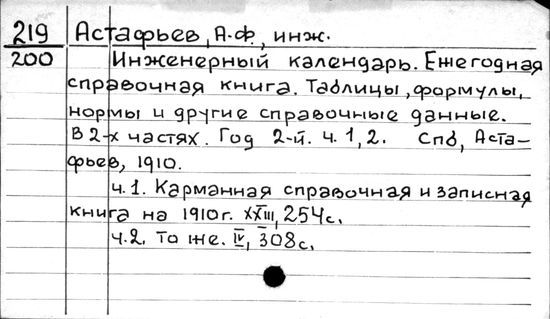 219 Астафьев, А.Ф., инж.
200 Инженерный календарь. Ежегодная
справочная книга. Таблицы, формулы,
нормы и другие справочные данные.
В 2-х частях. Год 2-й. ч. 1, 2. Спб, Аста-
фьев, 1910.
ч.1. Карманная справочная и записная
книга на 1910 г. XXIII, 254 с.
ч.2. То же. IV, 308 с.